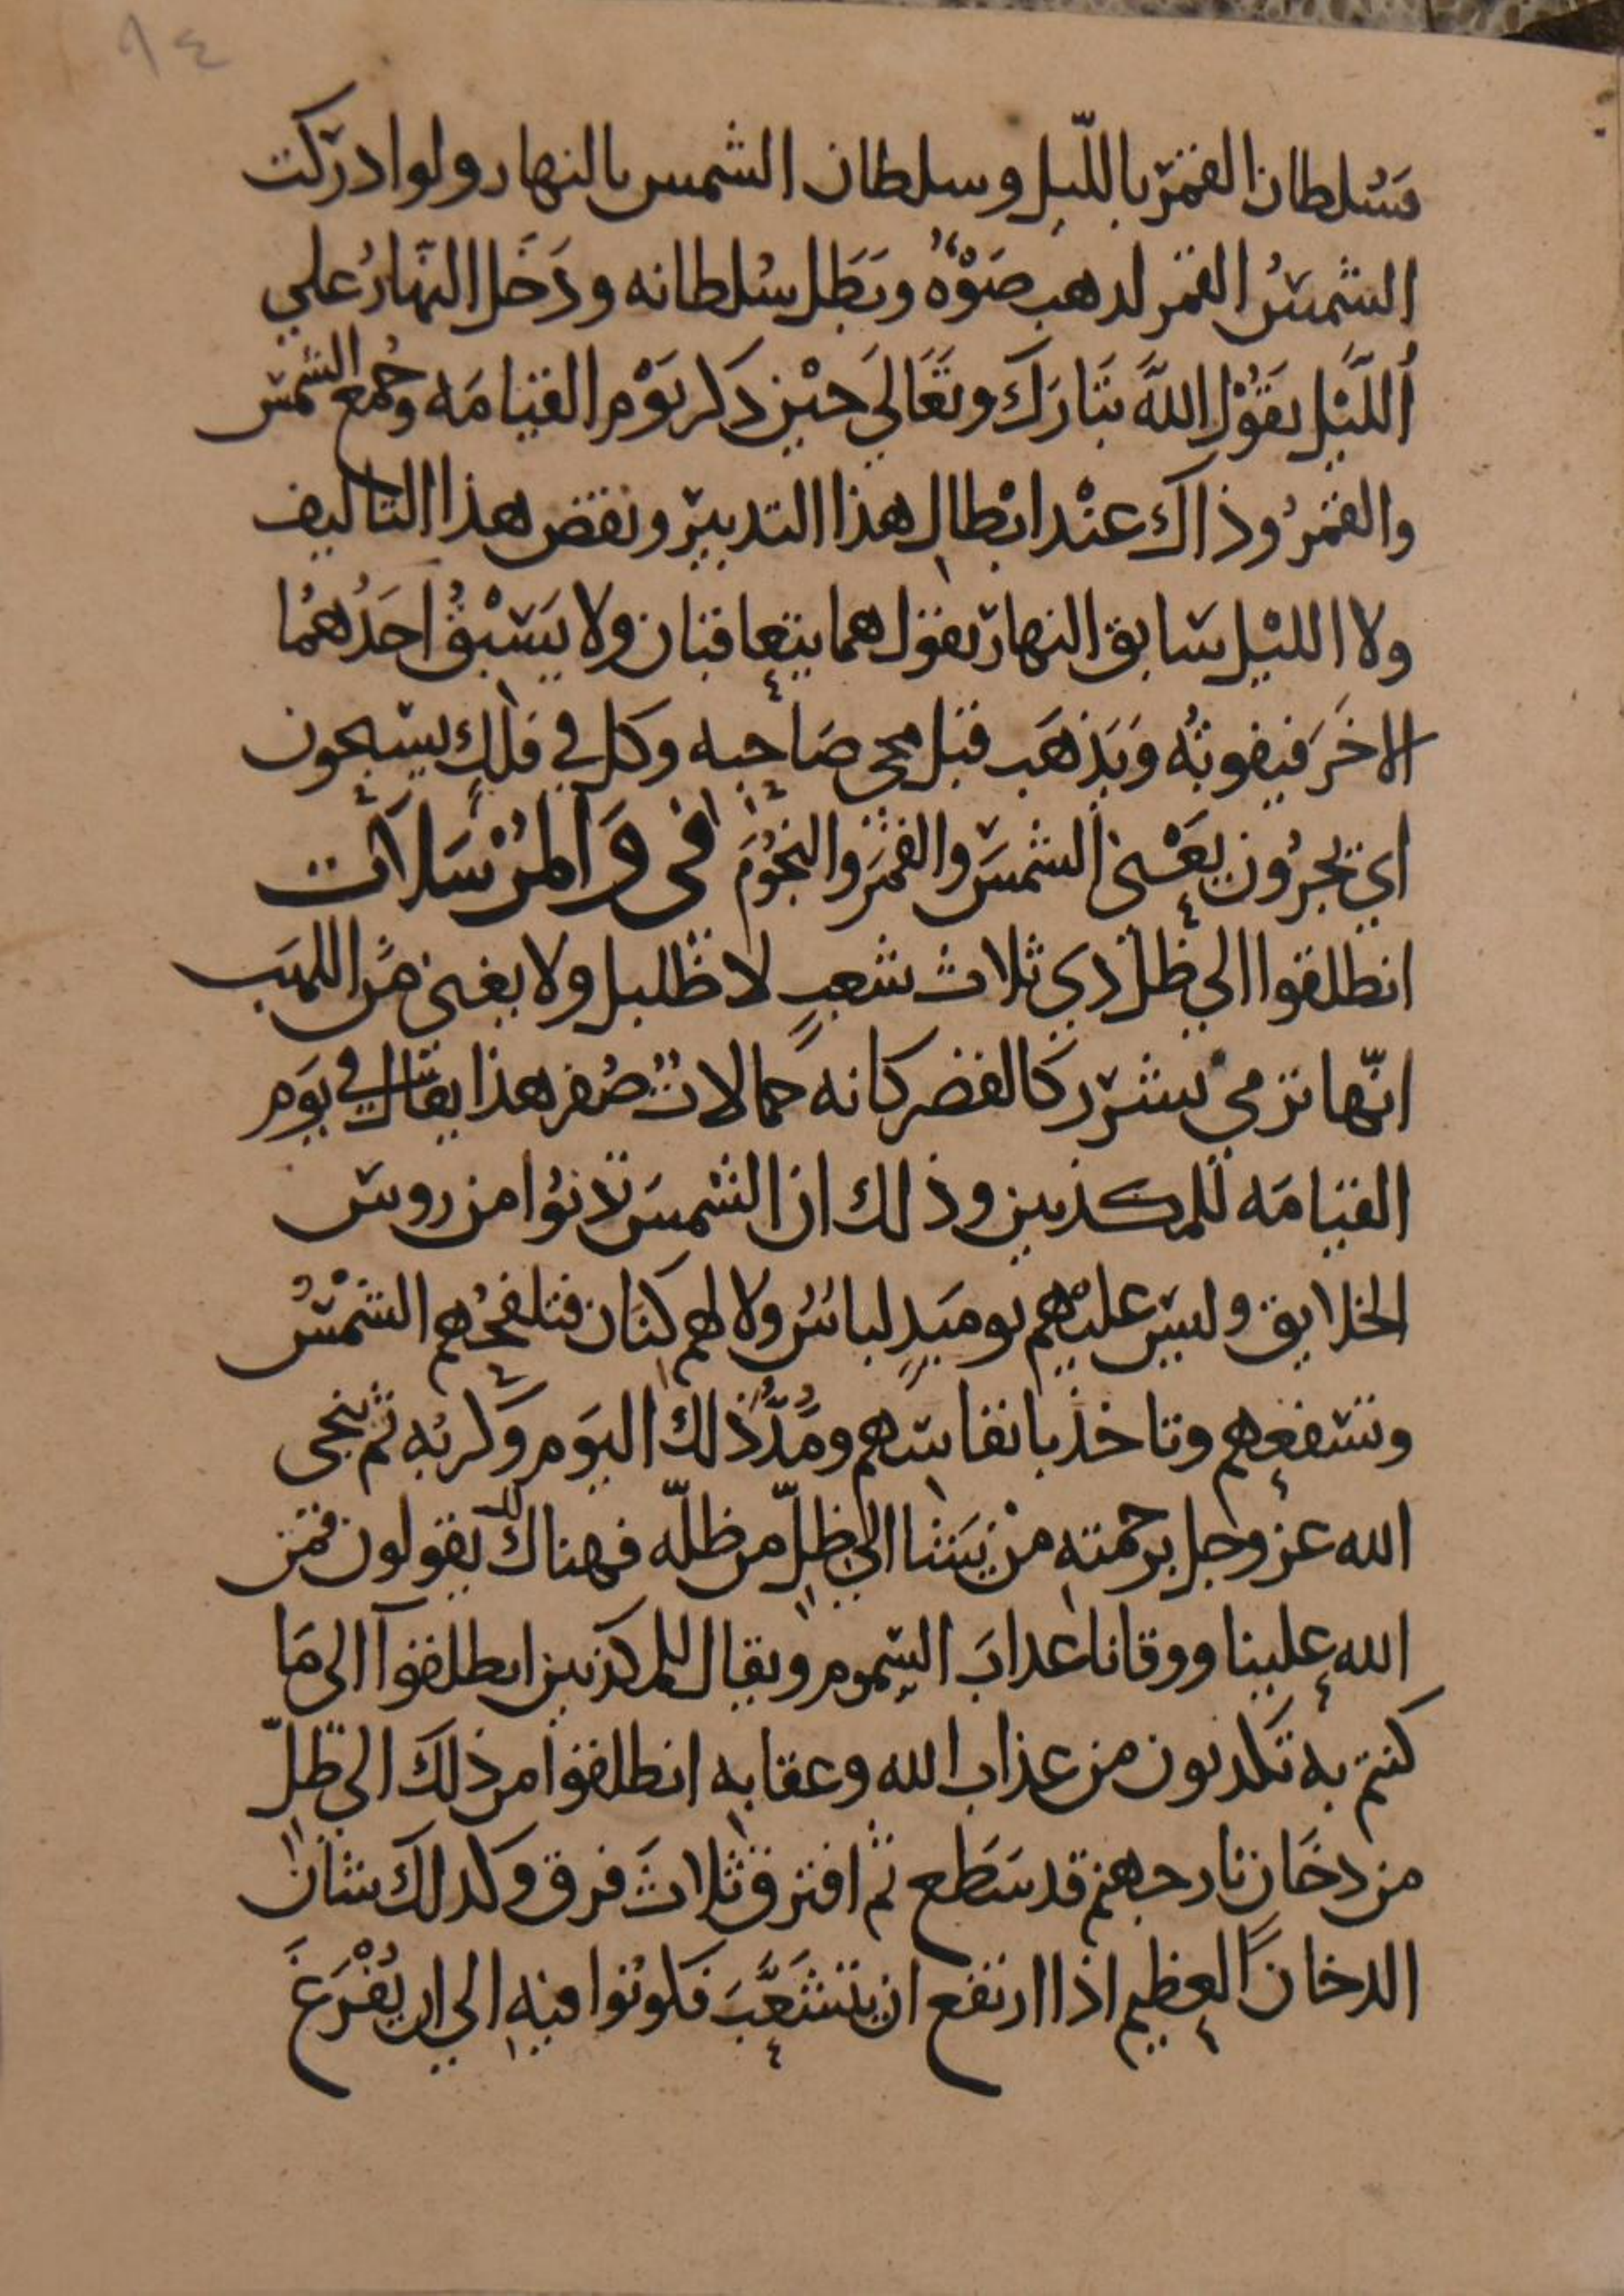 ٩٤
فسُلطان القمر بالليل وسلطان الشمس بالنهار ولو ادركت
الشمسُ القمر لذهب ضَوْءُه وبَطَل سُلطانه ودَخَل النّهارُ علي
اللّيْل يقُوْل اللّه تبَارَك وتعَالَي حيْن ذكر يَوْم القيامَه وجُمع الشمس
والقمرُ وذاك عنْد ابْطال هذا التدبير ونقض هذا التاليف
ولا الليْل سَابق النهار يقول هما يتعاقبان ولا يَسْبقُ احَدُهمُا
الاخَر فيفوتُه وَيَذهَب قبل مجي صَاحبه وكل في فلكٍ يسبحون
اي يجرُون يَعْني الشمسَ والقمَر والنجُوْمَ في وَالمُرْسَلاَت
انطلقوا الي ظل ذي ثلاث شعبٍ لا ظليل ولا يغني من اللهَب
انّها ترمي بشرر كالقصر كانه جمالاتٌ صُفر هذا يقال في يوَم
القيامَه للمكذبين وذلك ان الشمسَ تدنوُا من روس
الخلايق وليس عليْهم يوميَذٍ لباسٌ ولا لهم كنَان فتلفحُهم الشمْسُ
وتسفعهم وتاخذ بانفاسهم ومُدَّ ذلك اليَوم وكربُه ثم ينجي
الله عز وجل برحمته منْ يَشا الي ظلّ من ظلّه فهناك يقولون فمَن
الله علينا ووقانا عذابَ السّموم ويقال للمكذبين انطلقوا الى مَا
كنتم به تكذبون من عذاب الله وعقابه انطلقوا من ذلك الي ظلّ
من دخَان نار جهنم قد سَطَع ثم افترق ثلاثَ فرق وكذلك شان
الدخان العظيم اذا ارتفع ان يتشَعَّبَ فكونوا فيه الي ان يُفْرَغَ